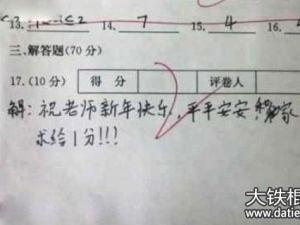 13. 14. 7 15. 4 16.
三.解答题(70分)
17.(10分) 得分 评卷人
解:祝老师新年快乐,平平安安,
求给1分!!!
大铁棍
www.datie